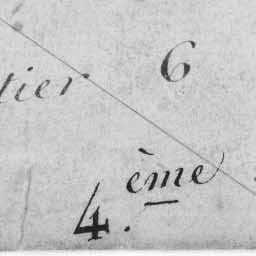 tier 6
4.ème